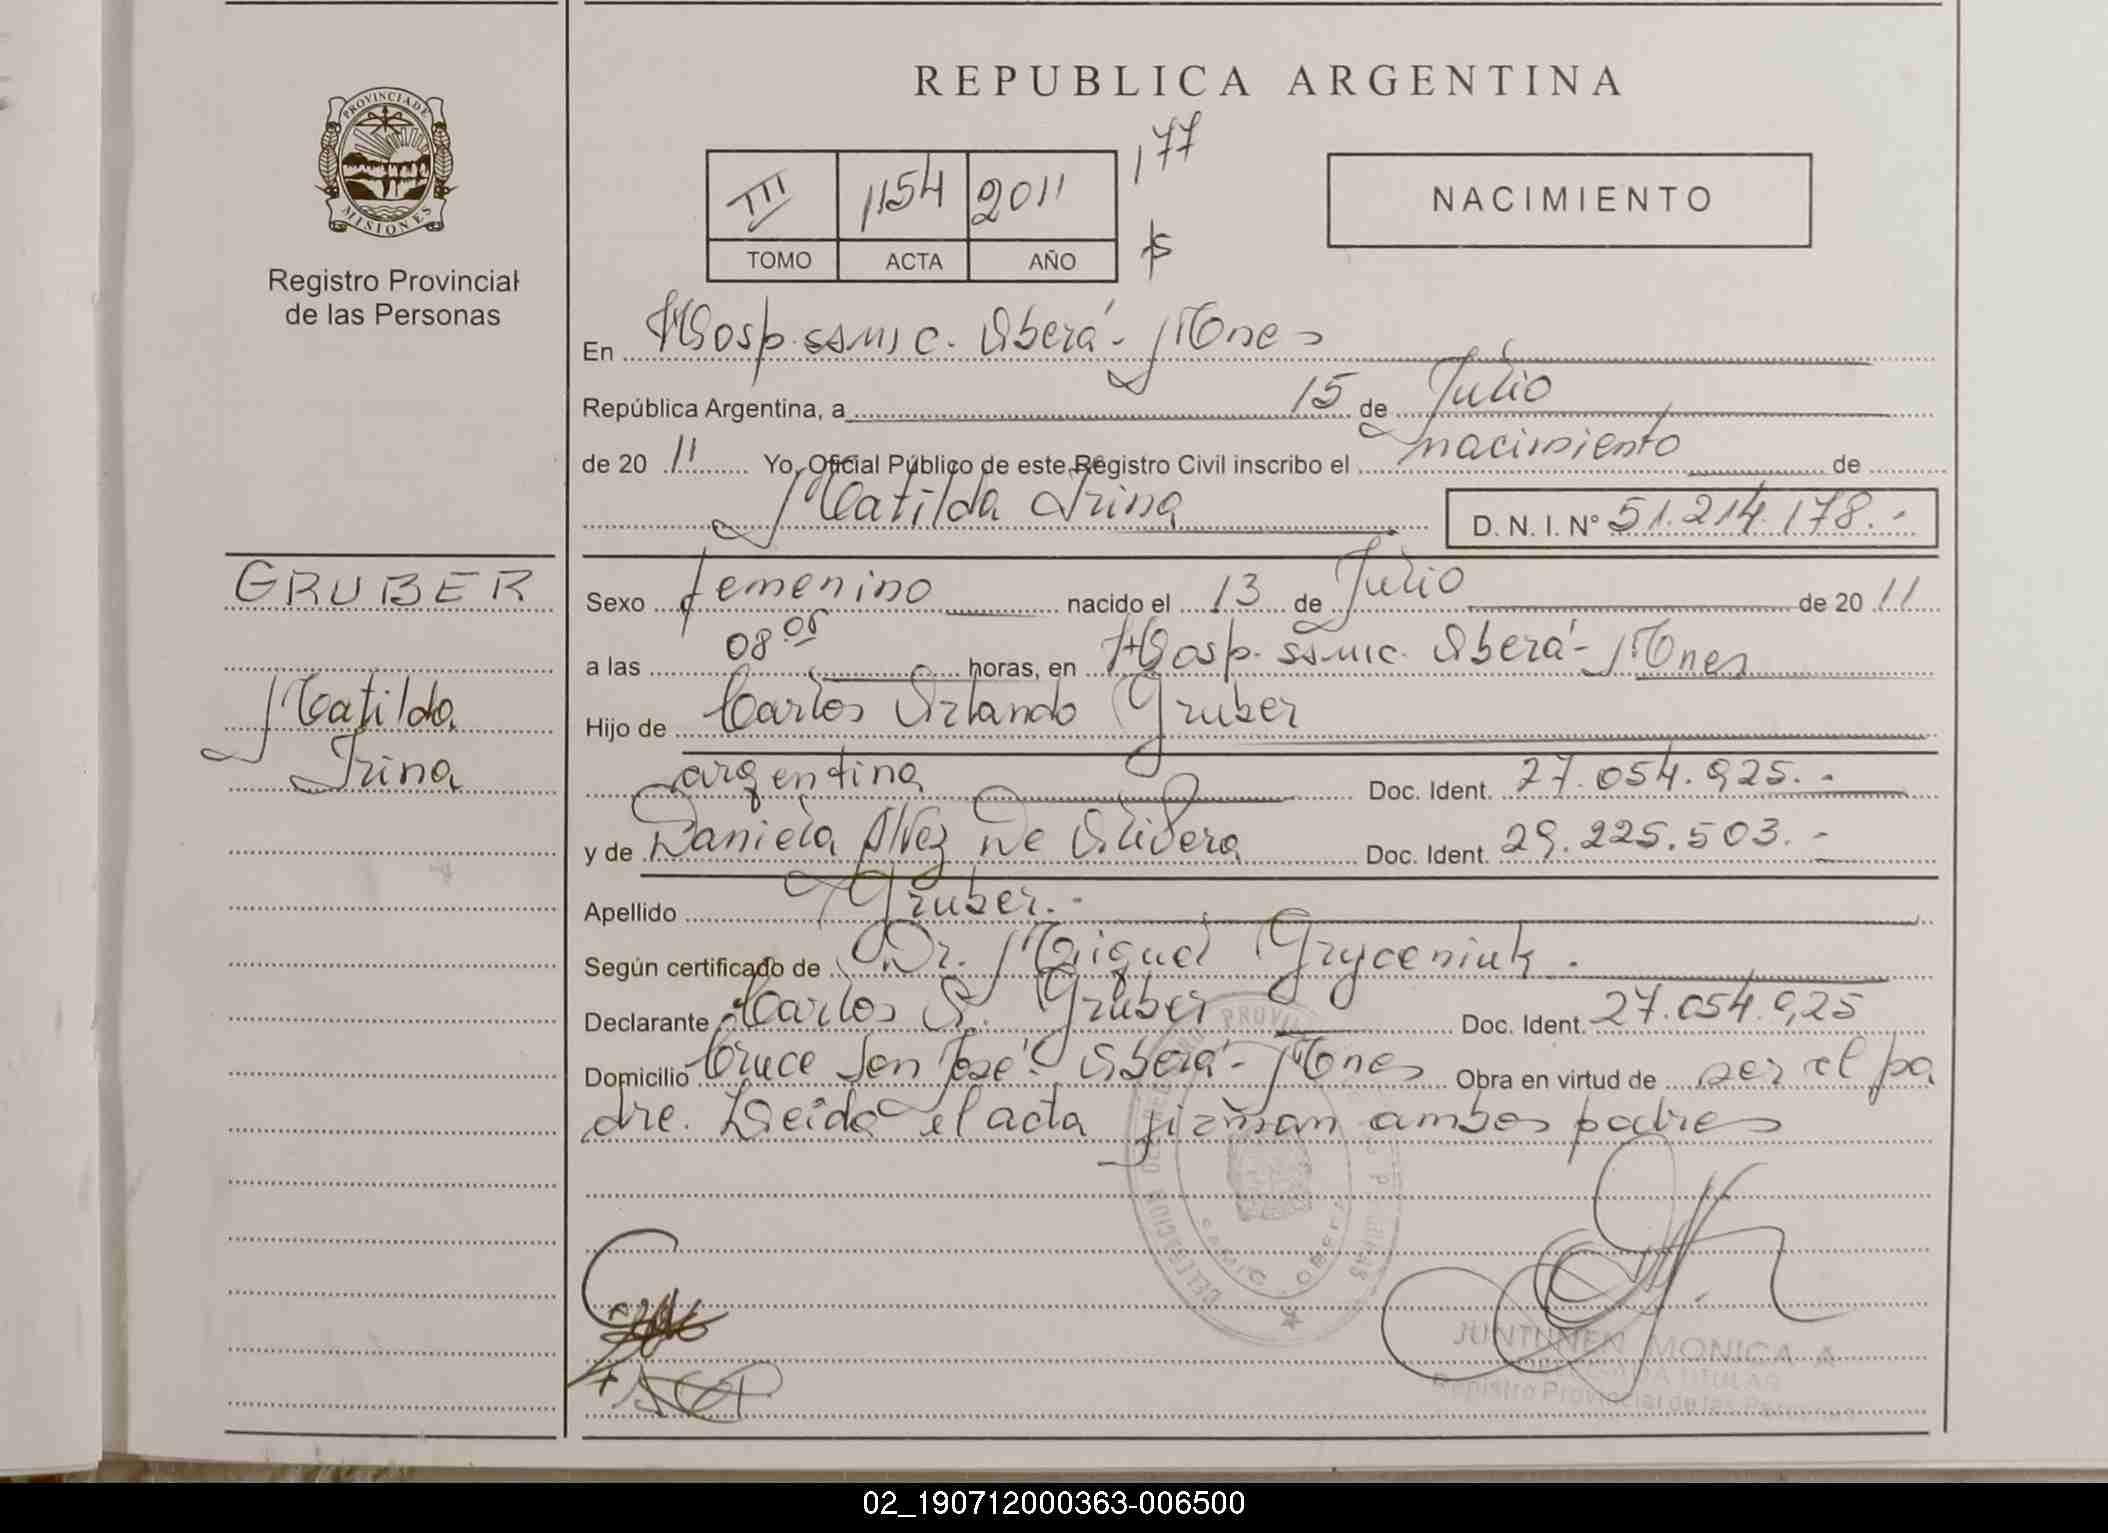 REPUBLICA ARGENTINA
PROVINCIA DE
MISIONES
Registro Provincial
de las Personas
III 1154 2011 177
TOMO ACTA AÑO
NACIMIENTO
En Hosp. ssmic. Oberá - Mnes
República Argentina, a 15 de Julio
de 20 11 Yo, Oficial Público de este Registro Civil inscribo el nacimiento de
Matilda Irina D. N. I. Nº 51.214.178.-
GRUBER
Matilda
Irina
Sexo femenino nacido el 13 de Julio de 20 11
a las 08 05 horas, en Hosp. ssmic. Oberá - Mnes
Hijo de Carlos Orlando Gruber
argentina Doc. Ident. 27.054.925.-
y de Daniela Alvez De Olivera Doc. Ident. 29.225.503.-
Apellido Gruber.-
Según certificado de Dr. Miguel Gryceniuk.
Declarante Carlos O. Gruber Doc. Ident. 27.054.925
Domicilio Cruce San José - Oberá - Mnes Obra en virtud de ser el pa
dre. Leída el acta firman ambos padres
JUNTUNEN MONICA A
DELEGADA TITULAR
Registro Provincial de las Personas
02_190712000363-006500